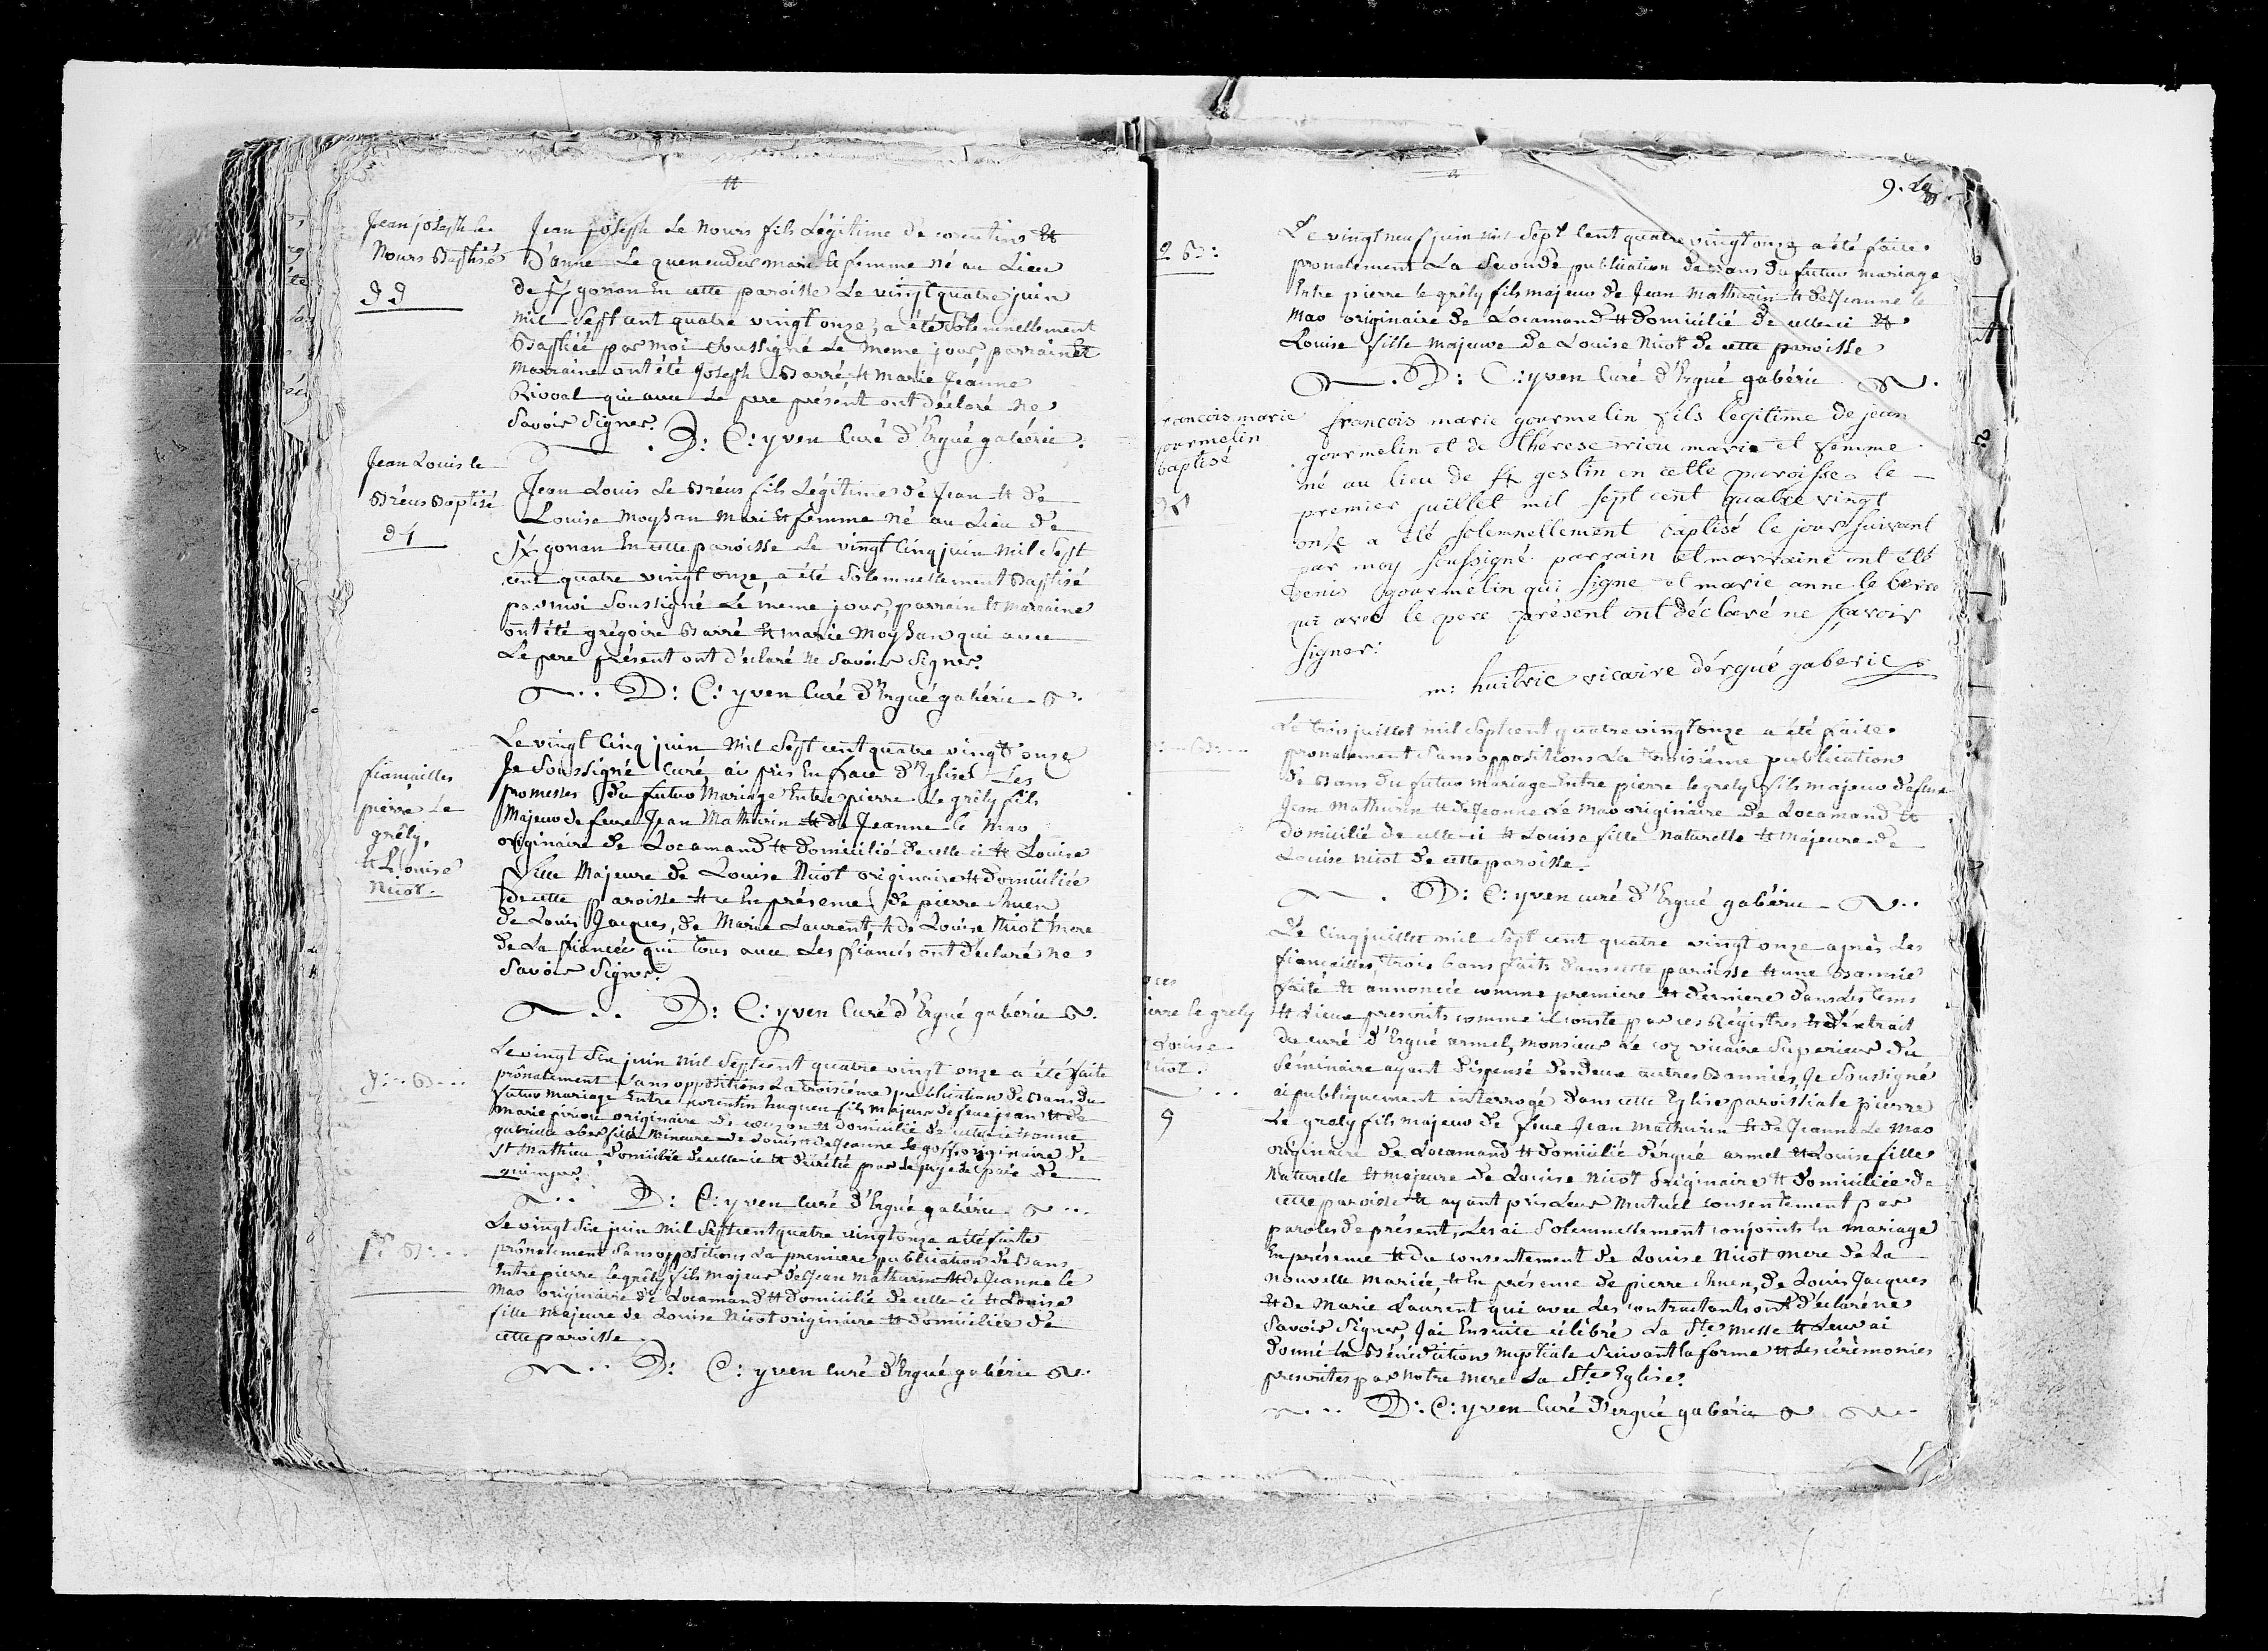 Jean joseph le
Nours Baptisé
33
Jean joseph Le Nours fils Légitime de corentin et
D'anne Le queneudec mari et femme né au Lieu
de Kgonan En cette paroisse Le vingt quatre juin
mil sept cent quatre vingt onze, a été Solemnellement
Baptisé par moi Soussigné Le meme jour, parrain et
Marraine ont été joseph Barré et Marie Jeanne
Rivoal qui avec Le pere présent ont déclaré ne
Savoir Signer.
D: C: yven Curé d'Ergué gabéric.
Jean Louis le
Bréus Baptisé
34
Jean Louis Le Bréus fils Légitime de Jean et de
Louise Moysan Mari et femme né au Lieu de
Kgonan En cette paroisse Le vingt Cinq juin Mil Sept
cent quatre vingt onze, a été Solemnellement Baptisé
par moi Soussigné Le meme jour, parrain et Marraine
ont été grégoire Barré et marie Moysan qui avec
Le pere présent ont déclaré ne Savoir Signer.
D: C: yven Curé d'Ergué gabéric
fiancailles
pierre Le
grêly,
et Louise
Nicot.
Le vingt Cinq juin Mil Sept cent quatre vingt onze
Je Soussigné Curé, ai pris En face d'Eglise Les
promesses du futur Mariage Entre pierre Le grêly fils
Majeur de feue Jean Mathurin et de Jeanne le Mao
originaire de Locamand et domicilié de celle-ci et Louise
fille Majeure de Louise Nicot originaire et domiciliée
de cette paroisse et ce En présence de pierre
de Louis Jacques, de Marie Laurent, et de Louise Nicot Mere
de La fiancée qui tous avec Les fiancés ont déclaré ne
Savoir Signer.
D: C: yven Curé d'Ergué gabéric
3: B
Le vingt Six juin Mil Sept cent quatre vingt onze a été faite
prônalement Sans oppositions La troisiéme publication de Bans du
futur Mariage Entre corentin huguen fils Majeur de feue jean et de
Marie piriou originaire de et domicilié de celle-ci et anne
gabrielle fille Mineure de Louis et de Jeanne le goff originaire de
St Mathieu domiciliée de celle-ci et décrétée par le
quimper.
D: C: yven Curé d'Ergué gabéric
1re B:
Le vingt Six juin Mil Sept cent quatre vingt onze a été faite
prônalement Sans oppositions La premiere publication de Bans
Entre pierre le grêly fils Majeur de Jean Mathurin et de Jeanne le
Mao originaire de Locamand et domicilié de celle-ci et Louise
fille Majeure de Louise Nicot originaire et domiciliée de
cette paroisse.
D: C: yven Curé d'Ergué gabéric
9.
2 B:
Le vingt neuf juin Mil Sept Cent quatre vingt onze a été faite
pronalement La Seconde publication de Bans du futur Mariage
Entre pierre le grêly fils majeur de Jean Mathurin et de Jeanne le
Mao originaire de Locamand et domicilié de celle-ci et
Louise fille Majeure de Louise Nicot de cette paroisse
D: C: yven Curé d'Ergué gabéric
francois marie
gourmelin
baptisé
francois marie gourmelin fils legitime de jean
gourmelin et de thérese riou marie et femme
né au lieu de K gestin en cette paroisse le
premier juillet mil sept cent quatre vingt
onze a été solemnellement baptisé le jour suivant
par moy soussigné. parrain et marraine ont été
denis gourmelin qui signe et marie anne le berre
qui avec le pere présent ont déclaré ne scavoir
signer:
m: huitric vicaire dérgué gaberic
Le trois juillet mil Sept cent quatre vingt onze a été faite
pronalement Sans oppositions La troisiéme publication
de Bans du futur Mariage Entre pierre le grely fils majeur de feue
Jean Mathurin et de Jeanne Le Mao originaire de Locamand et
domicilié de celle-ci et Louise fille Naturelle et Majeure de
Louise Nicot de cette paroisse.
D: C: yven curé d'Ergué gabéric
ierre le grely
Louise
icot.
9
Le Cinq juillet mil Sept cent quatre vingt onze après Les
fiancailles, trois bans faits dans cette paroisse et une Bannie
faite et annoncée comme premiere et derniere dans Les tems
et Lieux prescrits comme il conste par ces Régistres et d'Extrait
du curé d'Ergué armel, Monsieur Le coz vicaire Superieur du
Séminaire ayant dispensé des deux autres Bannies, Je Soussigné
ai publiquement interrogé dans cette Eglise paroissiale pierre
Le grely fils Majeur de feue Jean Mathurin et de Jeanne Le Mao
originaire de Locamand et domicilié d'ergué armel et Louise fille
Naturelle et majeure de Louise Nicot originaire et domiciliée de
cette paroisse et ayant pris Leur Mutuel Consentement par
paroles de présent, Les ai Solemnellement conjoints En Mariage
En présence et du consentement de Louise Nicot mere de La
nouvelle Mariée, et En présence de pierre de Louis Jacques
et de Marie Laurent qui avec Les contractants ont déclaré ne
Savoir Signer, J'ai Ensuite célébré La Ste Messe et Leur ai
donné la Bénédiction Nuptiale Suivant la forme et Les cérémonies
prescrites par Notre Mere La Ste Eglise.
D: C: yven Curé d'ergué gabéric